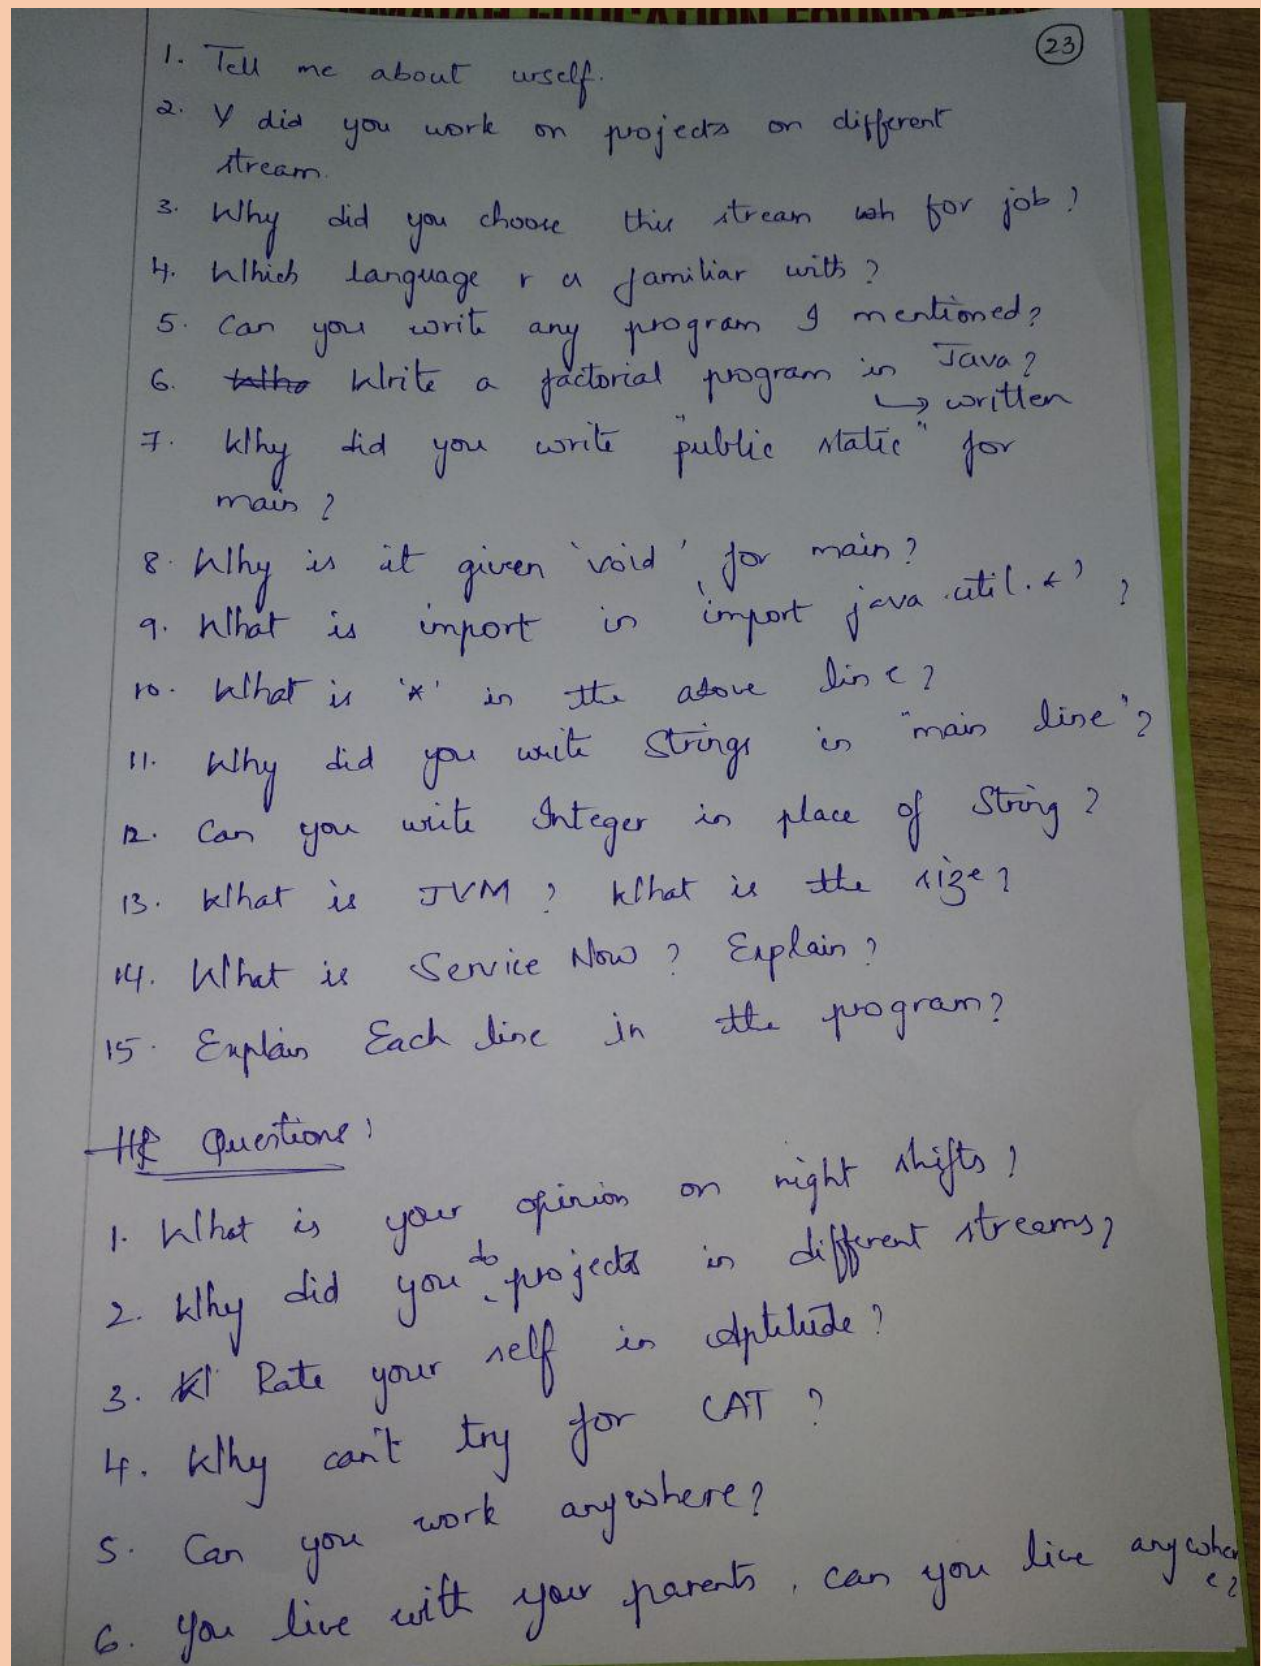 EDUCATION FOUNDATION
23
1. Tell me about urself.
2. Y did you work on projects on different
stream.
3. Why did you choose this stream for job?
4. Which language r u familiar with?
5. Can you write any program I mentioned?
6. Write a factorial program in Java?
↳ written
7. Why did you write "public static" for
main?
8. Why is it given 'void' for main?
9. What is import in 'import java.util.*'?
10. What is '*' in the above line?
11. Why did you write Strings in "main line"?
12. Can you write Integer in place of String?
13. What is JVM? What is the size?
14. What is Service Now? Explain?
15. Explain Each line in the program?
HR Questions:
1. What is your opinion on night shifts?
2. Why did you do projects in different streams?
3. Rate your self in Aptitude?
4. Why can't try for CAT?
5. Can you work anywhere?
6. You live with your parents, can you live anywhere?